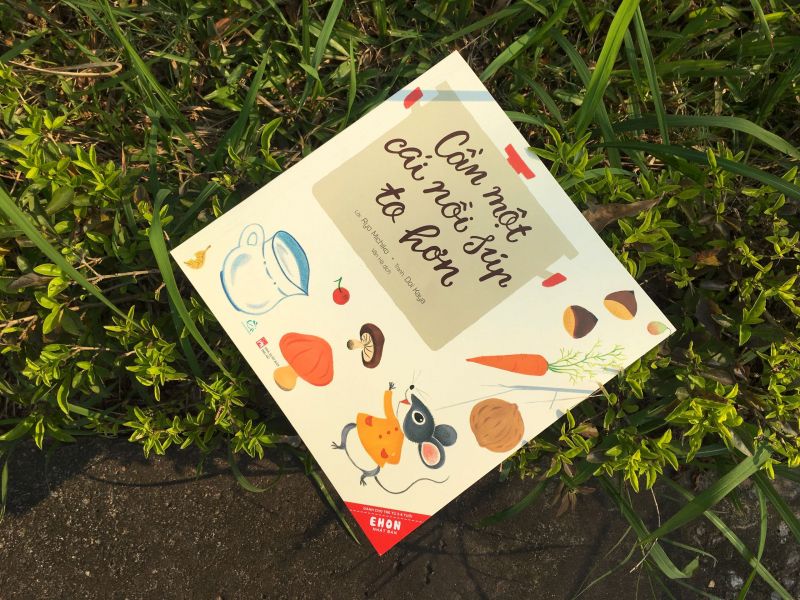 Cần một
cái nồi súp
to hơn
Lời: Ryo Michiko • Tranh: Doi Kaya
DÀNH CHO TRẺ TỪ 3-8 TUỔI
EHON
NHẬT BẢN